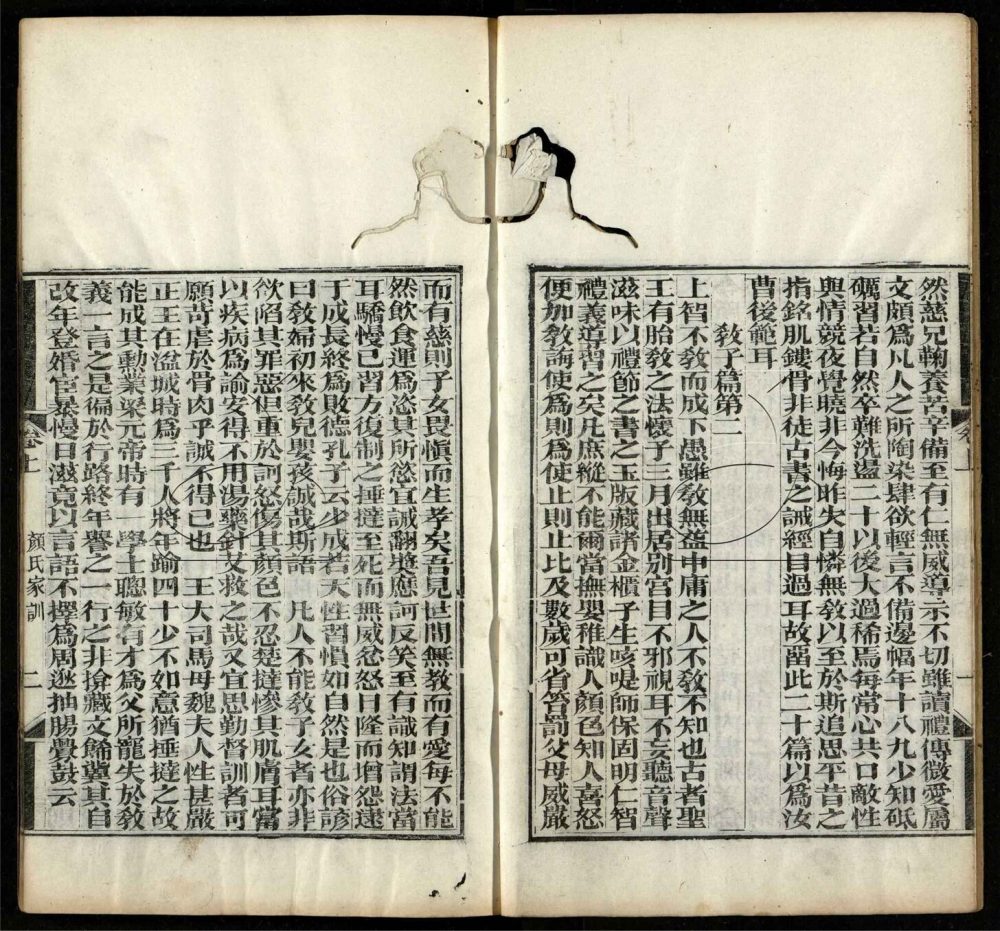 然慈兄鞠養苦辛備至有仁無威導示不切雖讀禮傳微愛屬
文頗爲凡人之所陶染肆欲輕言不備邊幅年十八九少知砥
礪習若自然卒難洗盪二十以後大過稀焉每常心共口敵性
與情競夜覺曉非今悔昨失自憐無教以至於斯追思平昔之
指銘肌鏤骨非徒古書之誡經目過耳故畱此二十篇以爲汝
曹後範耳
教子篇第二
上智不教而成下愚雖教無益中庸之人不教不知也古者聖
王有胎教之法懷子三月出居別宮目不邪視耳不妄聽音聲
滋味以禮節之書之玉版藏諸金櫃子生咳㖷師保固明仁智
禮義導習之矣凡庶縱不能爾當撫嬰稚識人顏色知人喜怒
便加教誨使爲則爲使止則止比及數歲可省笞罰父母威嚴
卷上
一
而有慈則子女畏愼而生孝矣吾見世間無教而有愛每不能
然飲食運爲恣其所慾宜誡翻奬應訶反笑至有識知謂法當
耳驕慢已習方復制之捶撻至死而無威忿怒日隆而增怨逮
于成長終爲敗德孔子云少成若天性習慣如自然是也俗諺
曰教婦初來教兒嬰孩誠哉斯語　凡人不能教子女者亦非
欲陷其罪惡但重於訶怒傷其顏色不忍楚撻慘其肌膚耳當
以疾病爲諭安得不用湯藥針艾救之哉又宜思勤督訓者可
願苛虐於骨肉乎誠不得已也　王大司馬母魏夫人性甚嚴
正王在湓城時爲三千人將年踰四十少不如意猶捶撻之故
能成其勳業梁元帝時有一學士聰敏有才爲父所寵失於教
義一言之是徧於行路終年譽之一行之非揜藏文餙冀其自
改年登婚宦暴慢日滋竟以言語不擇爲周逖抽腸釁鼓云
卷上
顏氏家訓
二